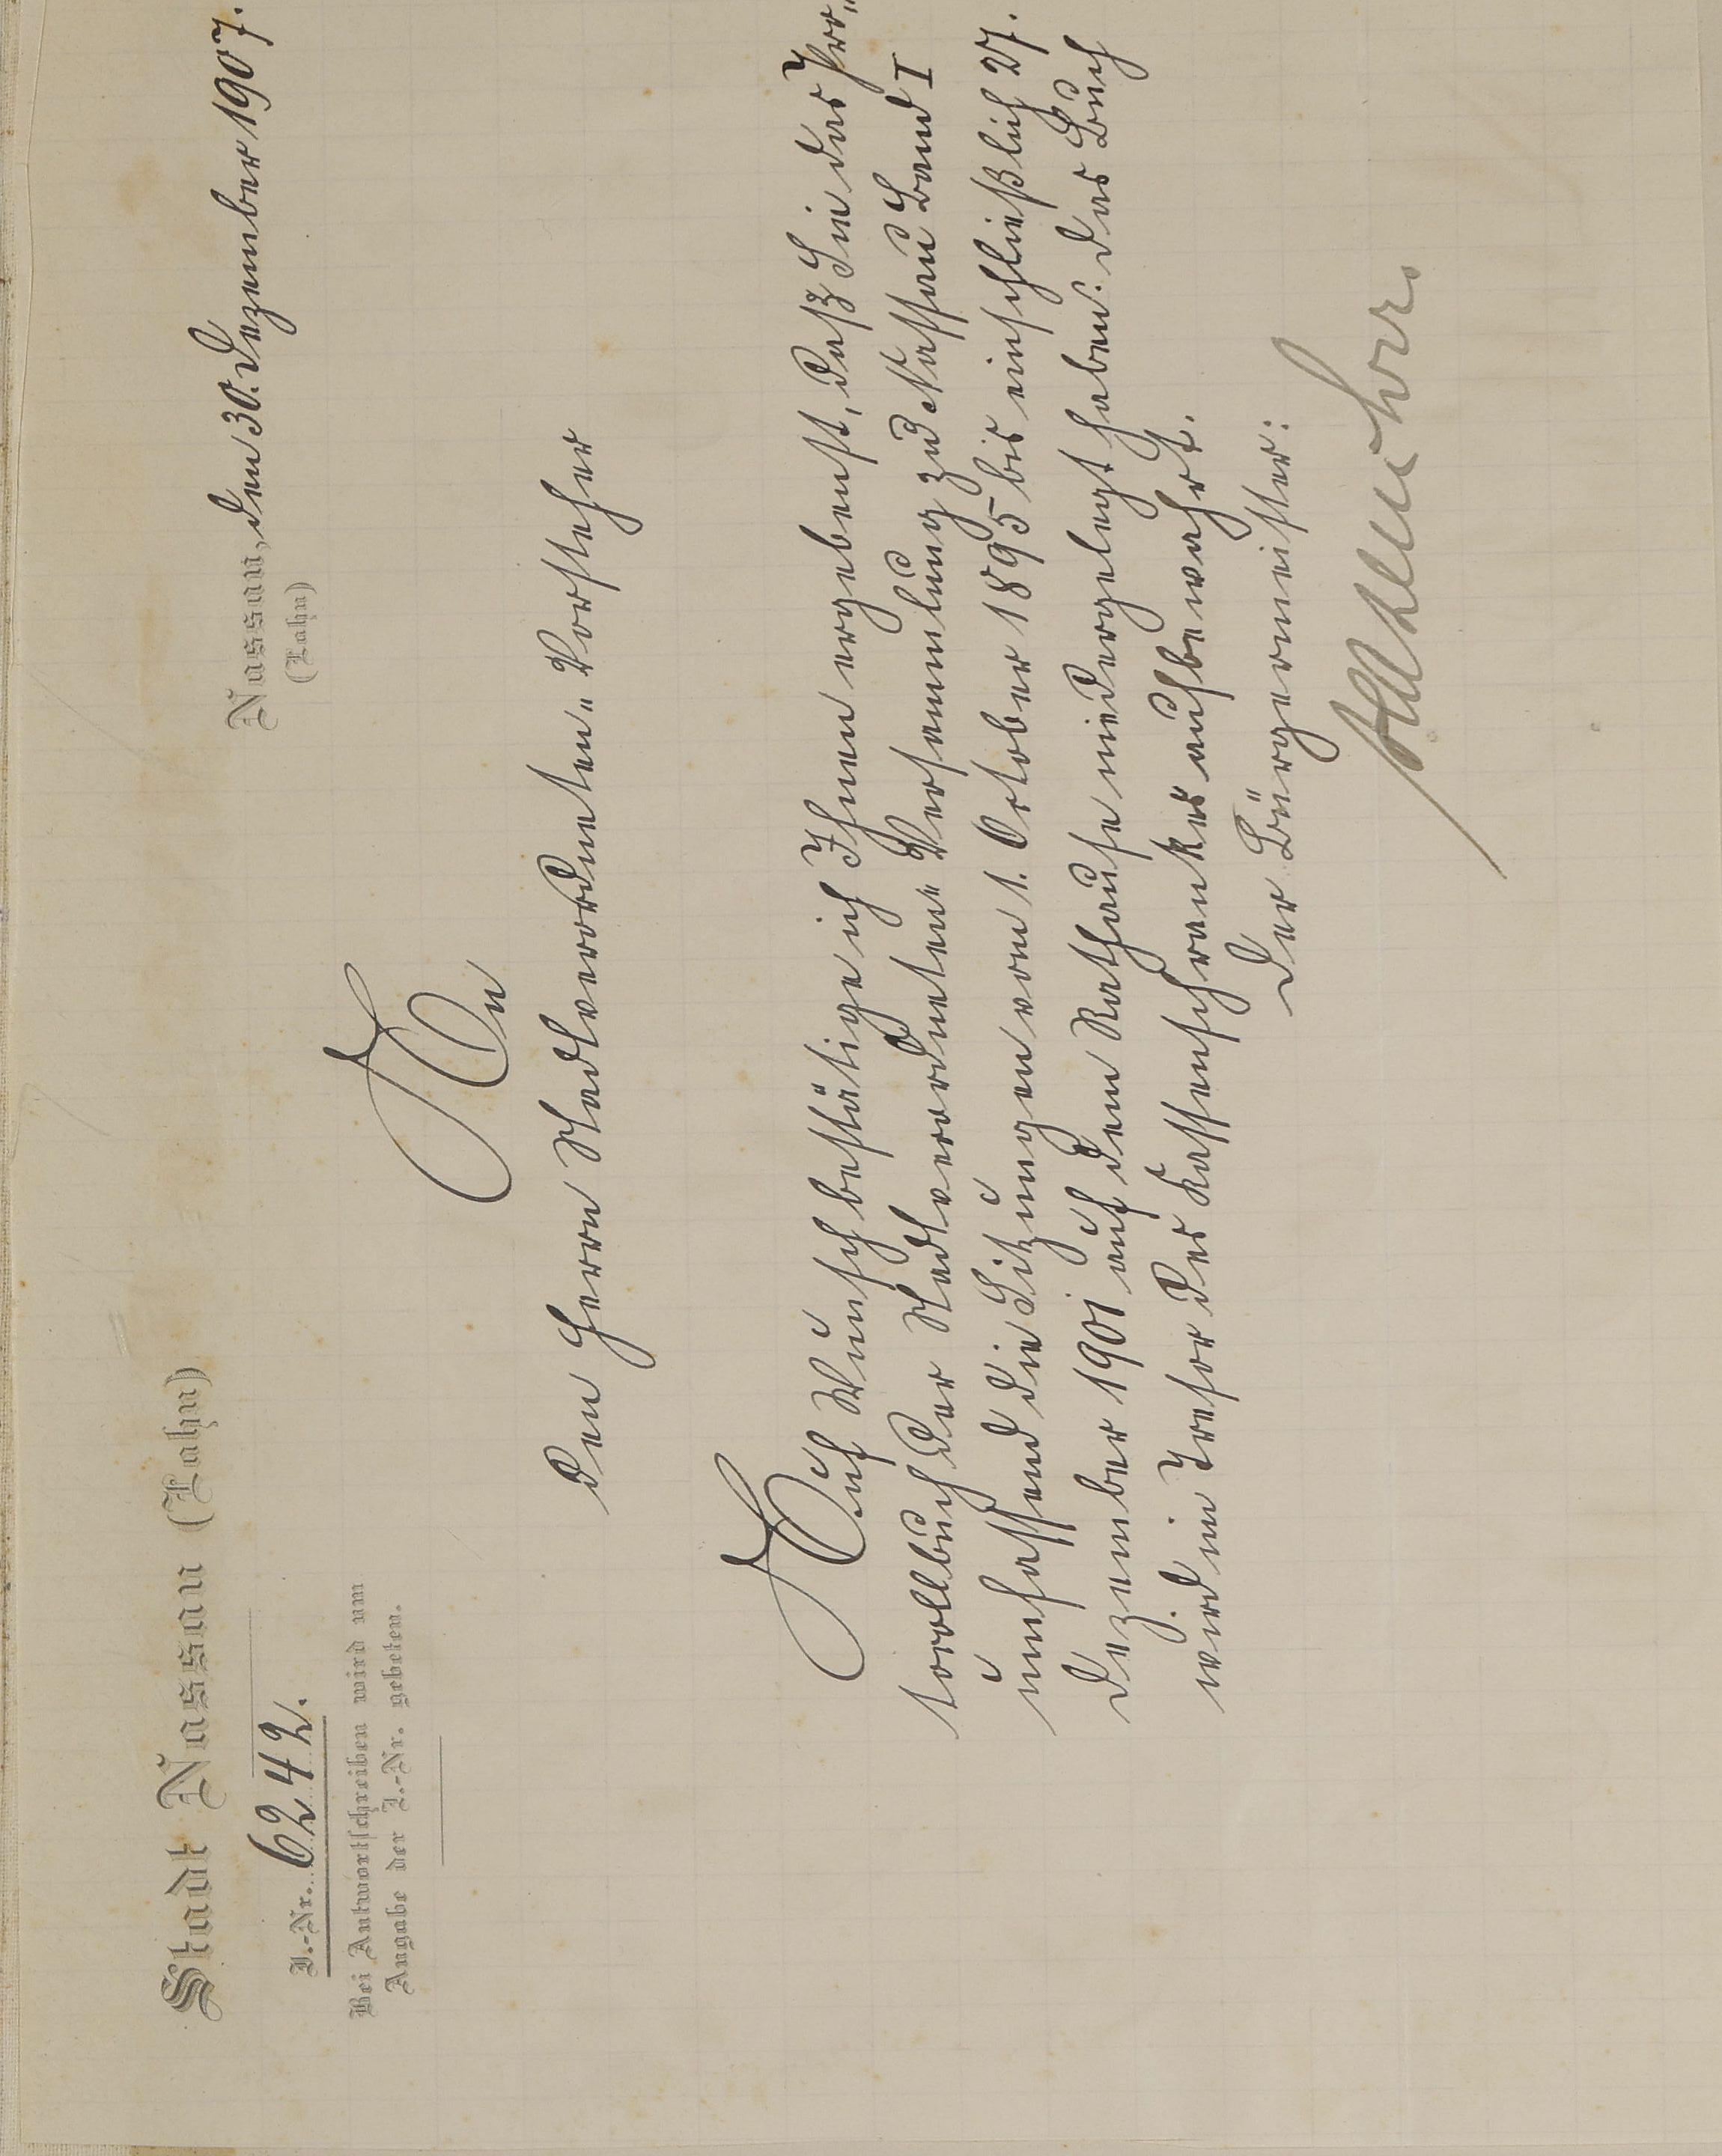 Stadt Nassau (Lahn)
J.-Nr. 6242.
Bei Antwortschreiben wird um
Angabe der J.-Nr. gebeten.
Nassau, den 30. Dezember 1907.
(Lahn)
An
den Herrn Stadtverordneten-Vorsteher
Auf Wunsch bestätige ich Ihnen ergebenst, daß Sie das Pro-
tocollbuch der Stadtverordneten-Versammlung zu Nassau Band I
umfassend die Sitzungen vom 1. October 1895 bis einschließlich 27.
Dezember 1901 auf dem Rathause niedergelegt haben. Das Buch
wird im Tresor des Kassenschrankes aufbewahrt.
Der Bürgermeister: